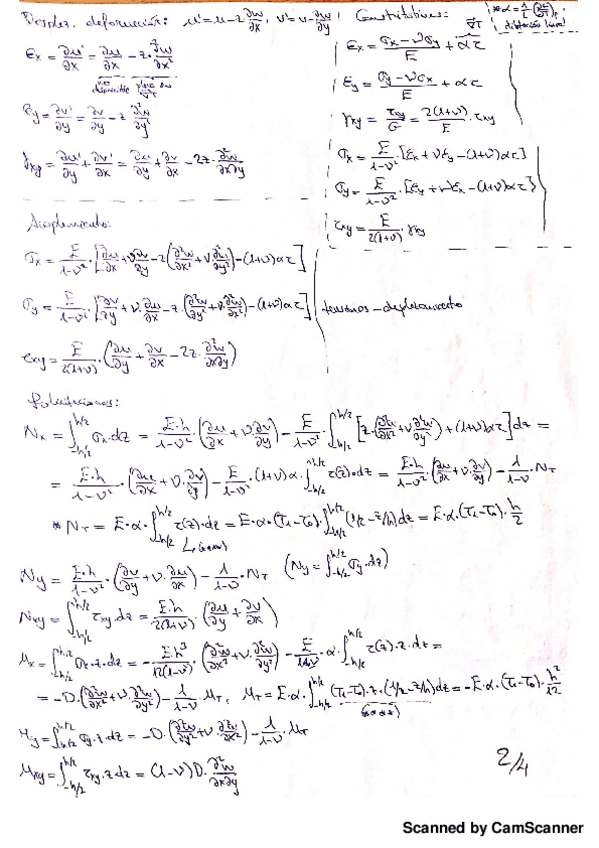 Desplaz. deformación: u' = u - z ∂w/∂x, v' = v - z ∂w/∂y
Constitutivas:
* α = 1/L (∂L/∂T)
dilatación lineal
εx = ∂u'/∂x = ∂u/∂x - z·∂²w/∂x²
εy = ∂v'/∂y = ∂v/∂y - z ∂²w/∂y²
γxy = ∂u'/∂y + ∂v'/∂x = ∂u/∂y + ∂v/∂x - 2z·∂²w/∂x∂y
εx = (σx - νσy)/E + ατ
εy = (σy - νσx)/E + ατ
γxy = τxy/G = 2(1+ν)/E · τxy
σx = E/(1-ν²)·[εx + νεy - (1+ν)ατ]
σy = E/(1-ν²)·[εy + νεx - (1+ν)ατ]
τxy = E/(2(1+ν))·γxy
Acoplamiento:
σx = E/(1-ν²)·[∂u/∂x + ν∂v/∂y - z(∂²w/∂x² + ν∂²w/∂y²) - (1+ν)ατ]
σy = E/(1-ν²)·[∂v/∂y + ν·∂u/∂x - z·(∂²w/∂y² + ν∂²w/∂x²) - (1+ν)ατ]
tensiones - desplazamiento
τxy = E/(2(1+ν))·(∂u/∂y + ∂v/∂x - 2z·∂²w/∂x∂y)
Solicitaciones:
Nx = ∫_{-h/2}^{h/2} σx·dz = E·h/(1-ν²)·(∂u/∂x + ν·∂v/∂y) - E/(1-ν²)·∫_{-h/2}^{h/2} [z·(∂²w/∂x² + ν·∂²w/∂y²) + (1+ν)ατ] dz =
= E·h/(1-ν²)·(∂u/∂x + ν·∂v/∂y) - E/(1-ν²)·(1+ν)α·∫_{-h/2}^{h/2} τ(z)·dz = E·h/(1-ν²)·(∂u/∂x + ν·∂v/∂y) - 1/(1-ν)·NT
* NT = E·α·∫_{-h/2}^{h/2} τ(z)·dz = E·α·(T1-T0)·∫_{-h/2}^{h/2} (1/2 - z/h)dz = E·α·(T1-T0)·h/2
Lineal
Ny = E·h/(1-ν²)·(∂v/∂y + ν·∂u/∂x) - 1/(1-ν)·NT (Ny = ∫_{-h/2}^{h/2} σy·dz)
Nxy = ∫_{-h/2}^{h/2} τxy·dz = E·h/(2(1+ν))·(∂u/∂y + ∂v/∂x)
Mx = ∫_{-h/2}^{h/2} σx·z·dz = -Eh³/(12(1-ν²))·(∂²w/∂x² + ν·∂²w/∂y²) - E/(1-ν)·α·∫_{-h/2}^{h/2} τ(z)·z·dz =
= -D·(∂²w/∂x² + ν·∂²w/∂y²) - 1/(1-ν)·MT, MT = E·α·∫_{-h/2}^{h/2} (T1-T0)·z·(1/2 - z/h)dz = -E·α·(T1-T0)·h²/12
My = ∫_{-h/2}^{h/2} σy·z·dz = -D·(∂²w/∂y² + ν·∂²w/∂x²) - 1/(1-ν)·MT
Mxy = ∫_{-h/2}^{h/2} τxy·z·dz = (1-ν)D·∂²w/∂x∂y
2/4
Scanned by CamScanner